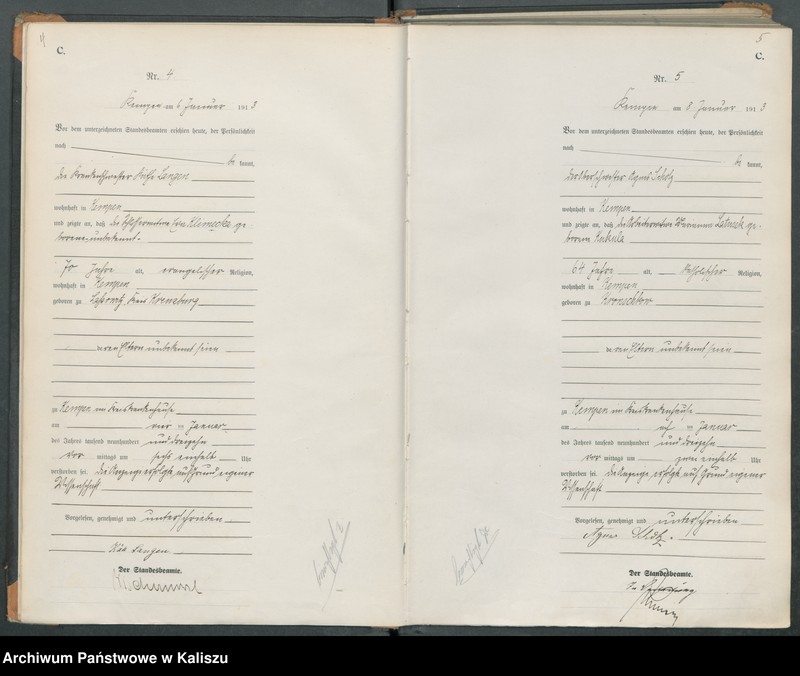 4
C.
Nr. 4
Kempen am 6 Januar 1913
Vor dem unterzeichneten Standesbeamten erschien heute, der Persönlichkeit
nach
be kannt,
die Krankenschwester Käthe Langen
wohnhaft in Kempen
und zeigte an, daß die Klimecka ge-
borene unbekannt.
70 Jahre alt, evangelischer Religion,
wohnhaft in Kempen
geboren zu Kreis Kreuzburg
deren Eltern unbekannt seien
zu Kempen im Kreiskrankenhause
am vier ten Januar
des Jahres tausend neunhundert und dreizehn
vor mittags um sechs einhalb Uhr
verstorben sei. Die Anzeige erfolgte auf Grund eigener
Wissenschaft
Vorgelesen, genehmigt und unterschrieben
Langen
Der Standesbeamte.
5
C.
Nr. 5
Kempen am 8. Januar 1913
Vor dem unterzeichneten Standesbeamten erschien heute, der Persönlichkeit
nach
be kannt,
die Oberschwester Agnes Scholz
wohnhaft in Kempen
und zeigte an, daß die Arbeiterwitwe Marianna Latusek ge-
borene Kukula
64 Jahre alt, katholischer Religion,
wohnhaft in Kempen
geboren zu
deren Eltern unbekannt seien
zu Kempen im Kreiskrankenhause
am ten Januar
des Jahres tausend neunhundert und dreizehn
vor mittags um zwei einhalb Uhr
verstorben sei. Die Anzeige erfolgte auf Grund eigener
Wissenschaft
Vorgelesen, genehmigt und unterschrieben
Agnes Scholz.
Der Standesbeamte.
Archiwum Państwowe w Kaliszu